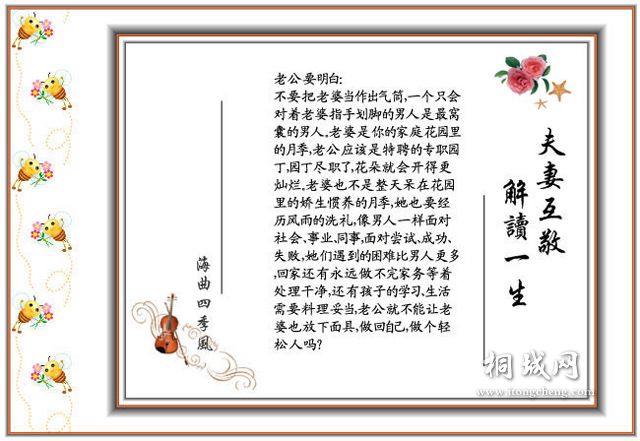 夫妻互敬
解讀一生
老公要明白:
不要把老婆当作出气筒,一个只会
对着老婆指手划脚的男人是最窝
囊的男人。老婆是你的家庭花园里
的月季,老公应该是特聘的专职园
丁,园丁尽职了,花朵就会开得更
灿烂。老婆也不是整天呆在花园
里的娇生惯养的月季,她也要经
历风雨的洗礼,像男人一样面对
社会、事业、同事,面对尝试、成功、
失败,她们遇到的困难比男人更多,
回家还有永远做不完家务等着
处理干净,还有孩子的学习、生活
需要料理妥当。老公就不能让老
婆也放下面具,做回自己,做个轻
松人吗?
海曲四季風
桐城网
www.itongcheng.com